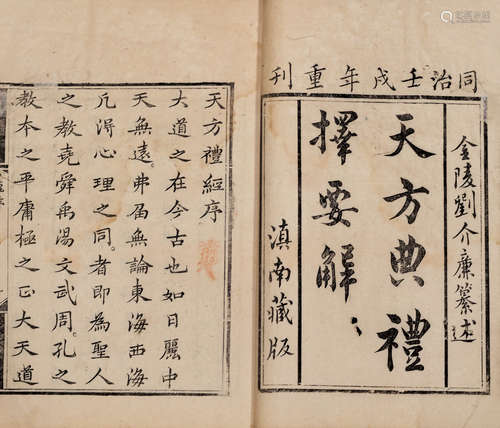 同治壬戌年重刊
金陵劉介廉纂述
天方典禮
擇要解
滇南藏版
天方禮經序
大道之在今古也如日麗中
天無遠弗届無論東海西海
凡得心理之同者即為聖人
之教堯舜禹湯文武周孔之
教本之平庸極之正大天道